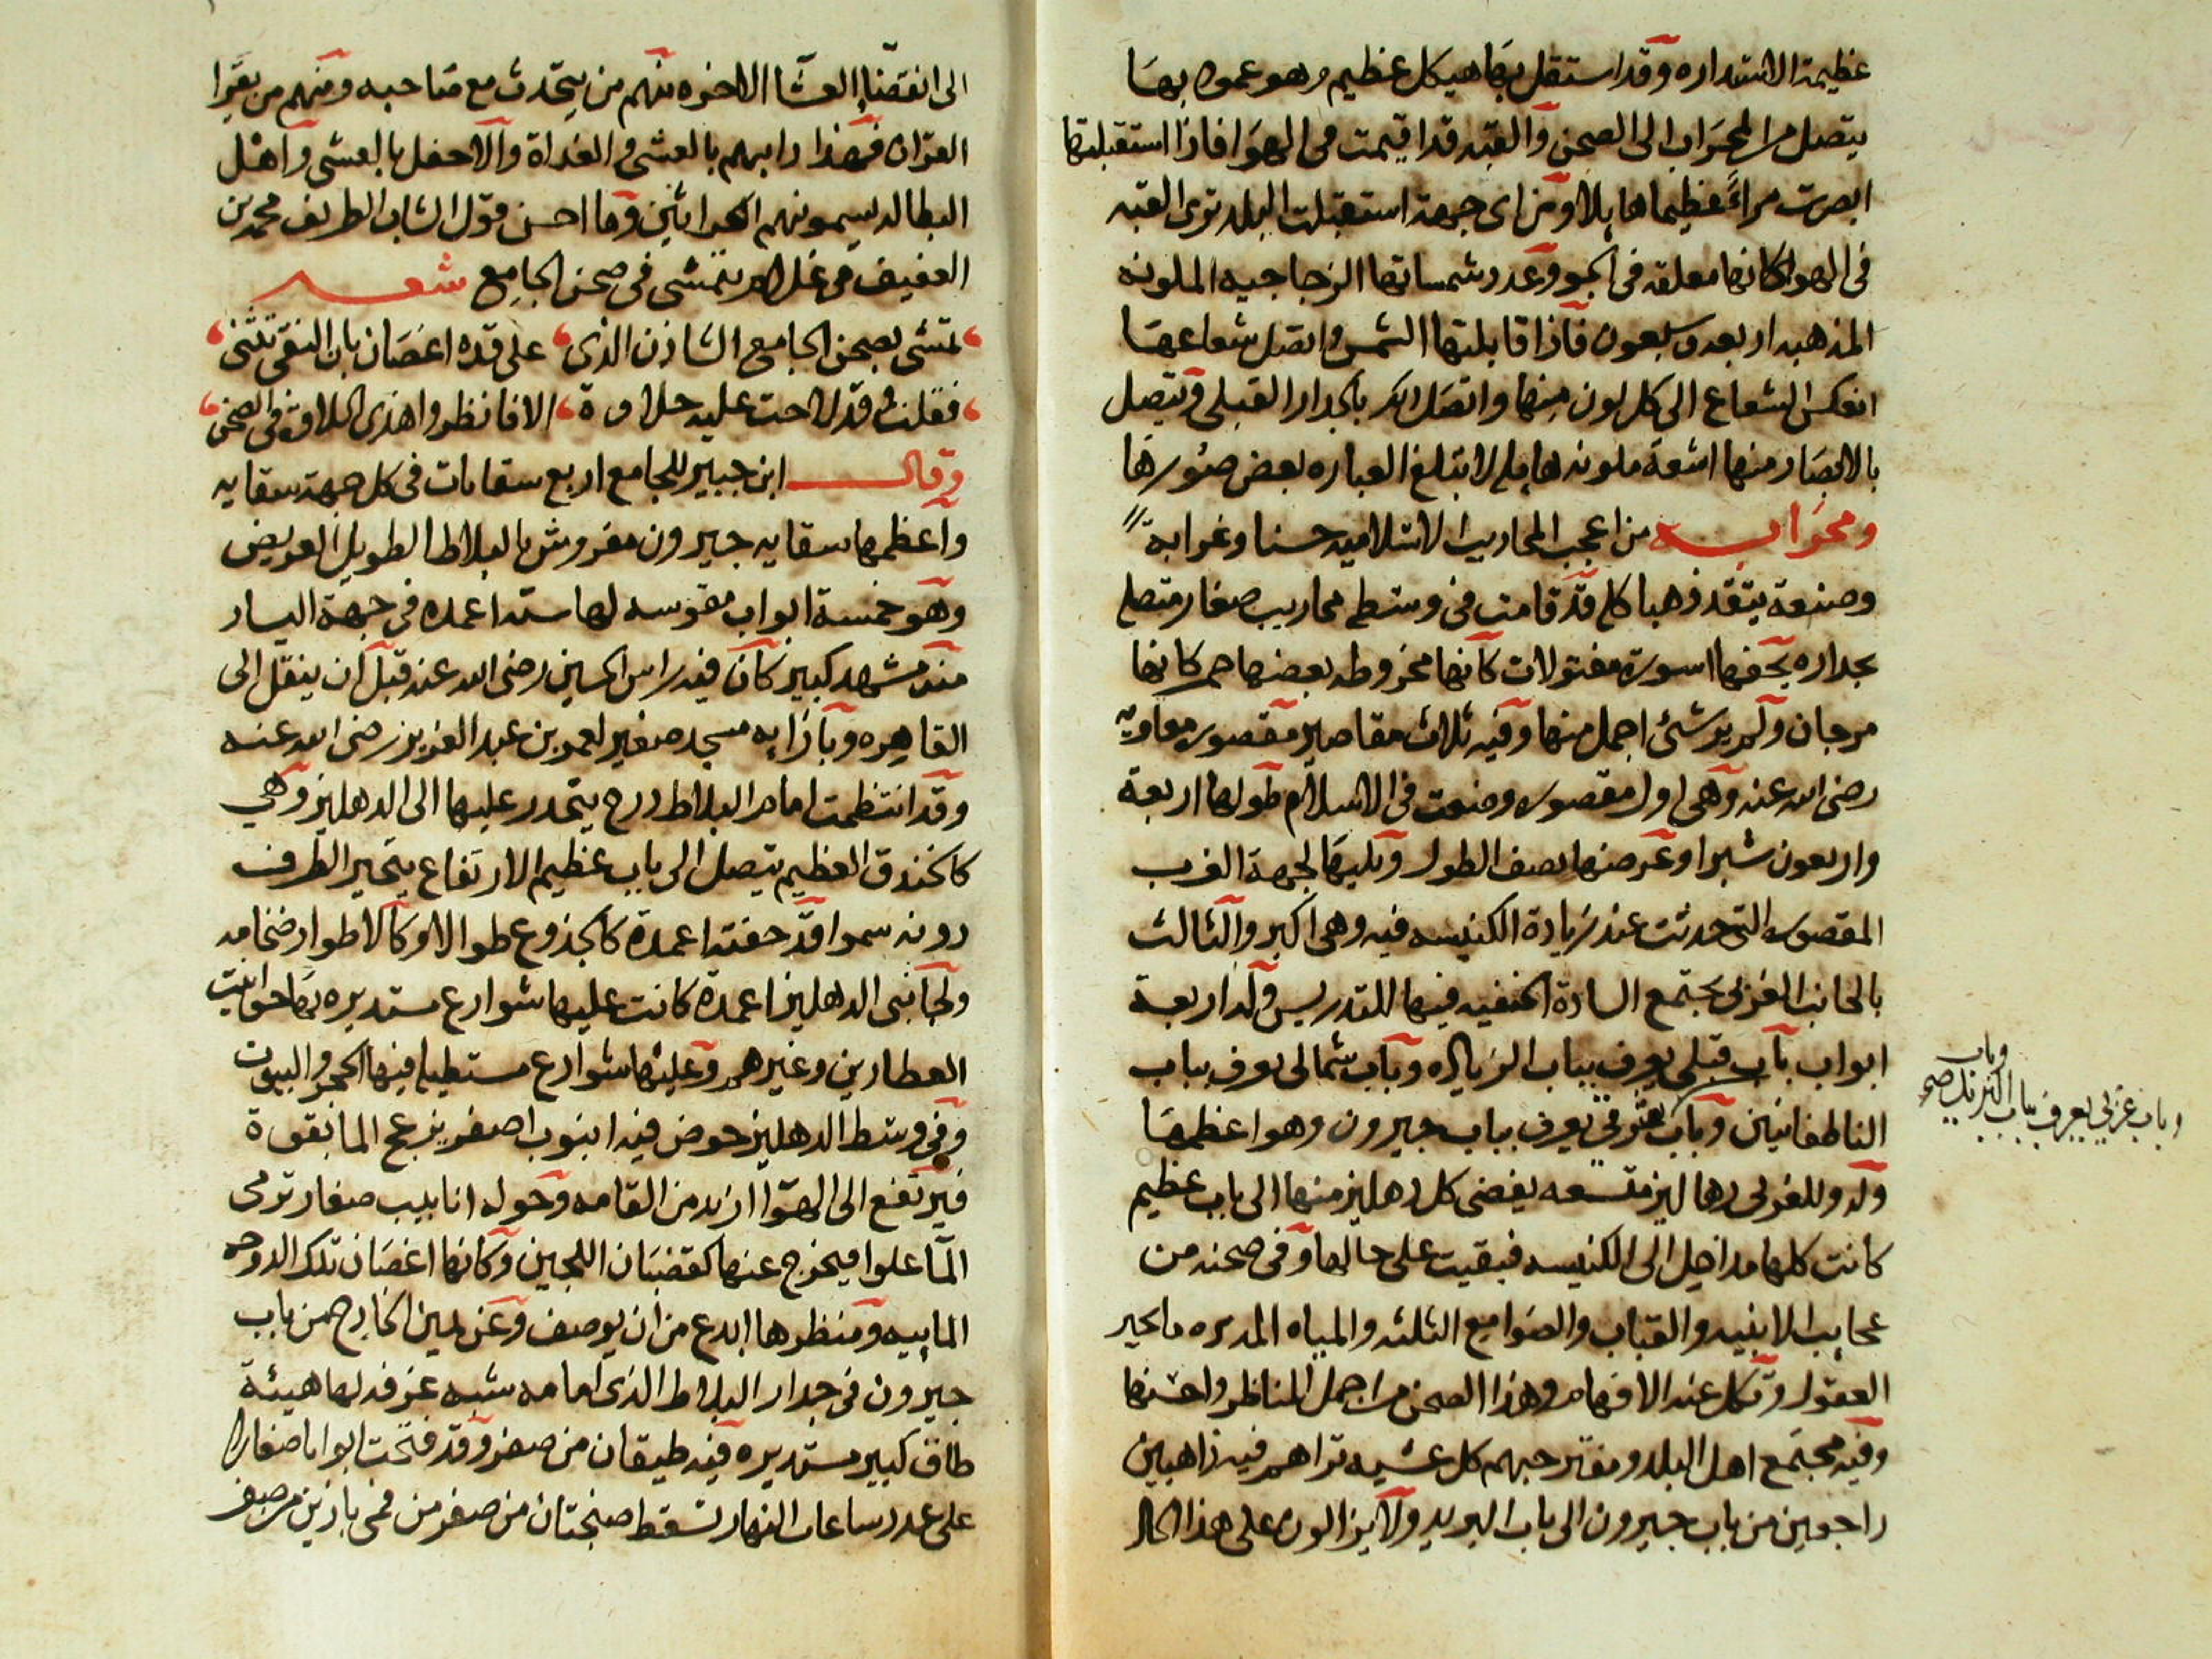 عظيمة الاستداره وقد استقل بها هيكل عظيم وهو عمود بها
يتصل من المحراب الى الصحن والقبه قد اقيمت فى الهوا فاذا استقبلتها
ابصرت مراءً عظيما هايلا ومن اى جهة استقبلت البلد ترى القبه
فى الهوا كانها معلقه فى الجو وعدد شمساتها الزجاجيه الملونه
المذهبه اربعه وسبعون فاذا قابلتها الشمس واتصل شعاعها
انعكس الشعاع الى كل لون منها واتصل ذلك بالجدار القبلى ويتصل
بالابصار منها اشعة ملونه هايله لا تبلغ العباره بعض صورها
ومحرابه من اعجب المحاريب الاسلاميه حسنا وغرابة
وصنعة يتقد ذهبا كله قد قامت فى وسطه محاريب صغار متصله
بجداره تحفها اسورة مفتولات كانها مخروطه بعضها حمر كانها
مرجان ولم ير شئ اجمل منها وفيه ثلاث مقاصير مقصوره معاويه
رضى الله عنه وهى اول مقصوره وضعت فى الاسلام طولها اربعة
واربعون شبرا وعرضها نصف الطول ويليها لجهة الغرب
المقصوره التى حدثت عند زيادة الكنيسه فيه وهى اكبر والثالث
بالجانب الغربى يجتمع السادة الحنفيه فيها للتدريس وله اربعة
ابواب باب قبلى يعرف بباب الزياده وباب شمالى يعرف بباب
الناطفانيين وباب شرقى يعرف بباب جيرون وهو اعظمها
وله وللغربى دهاليز متسعه يفضى كل دهليز منها الى باب عظيم
كانت كلها مداخل الى الكنيسه فبقيت على حالها وفى صحنه من
عجايب الابنيه والقباب والصوامع الثلثه والمياه المديره ما يحير
العقول وتكل عنه الافهام وهذا الصحن من اجمل المناظر واحسنها
وفيه مجتمع اهل البلد ومتفرجهم كل عشيه تراهم فيه ذاهبين
راجعين من باب جيرون الى باب البريد ولا يزالون على هذا الحال
وباب
وباب غربى يعرف بباب البريد صح
الى انقضا العشا الاخره منهم من يتحدث مع صاحبه ومنهم من يقرا
القران فهذا دابهم بالعشى والغداة والاحفل بالعشى واهل
البطاله يسمونهم الحراثين وما احسن قول الشاب الظريف محمد بن
العفيف فى غلام يتمشى فى صحن الجامع شعر
تمشى بصحن الجامع الشاذن الذى على قده اغصان بان النقى تثنى
فقلت وقد لاحت عليه حلاوة الا فانظروا هذى الحلاوة فى الصحن
وقال ابن جبير للجامع اربع سقايات فى كل جهة سقايه
واعظمها سقايه جيرون مفروش بالبلاط الطويل العريض
وهو خمسة ابواب مقوسه لها سته اعمده فى جهة اليسار
منه مشهد كبير كان فيه راس الحسين رضى الله عنه قبل ان ينقل الى
القاهره وبازايه مسجد صغير لعمر بن عبد العزيز رضى الله عنه
وقد انتظمت امام البلاط درج ينحدر عليها الى الدهليز وهي
كالخندق العظيم يتصل الى باب عظيم الارتفاع يتحير الطرف
دونه سموا قد حفته اعمدة كالجذوع طوالا وكالاطوار ضخامه
ولجانبى الدهليز اعمدة كانت عليها شوارع مستديره بها حوانيت
العطارين وغيرهم وعليها شوارع مستطيله فيها الحجر والبيوت
وفى وسط الدهليز حوض فيه انبوب اصفر يزعج الما بقوة
فيرتفع الى الهوا ازيد من القامه وحوله انابيب صغار ترمى
الما علوا فيخرج عنها كقضبان اللجين وكانها اغصان تلك الدوحه
الماييه ومنظرها ابدع من ان يوصف وعن يمين الخارج من باب
جيرون فى جدار البلاط الذى امامه شبه غرفه لها هيئة
طاق كبير مستديره فيه طيقان من صفر وقد فتحت ابوابا صغارا
على عدد ساعات النهار تسقط صنجتان من صفر من فمى بازين من صفر